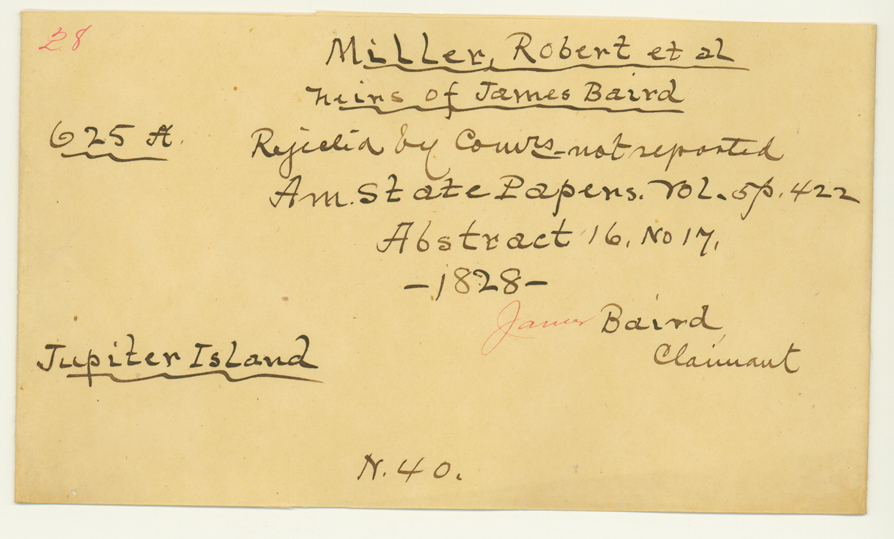 28
Miller, Robert et al
heirs of James Baird
625 A. Rejected by Comrs - not reported
Am. State Papers. Vol. 5 p. 422
Abstract 16. No 17.
-1828-
James Baird
Claimant
Jupiter Island
N. 40.